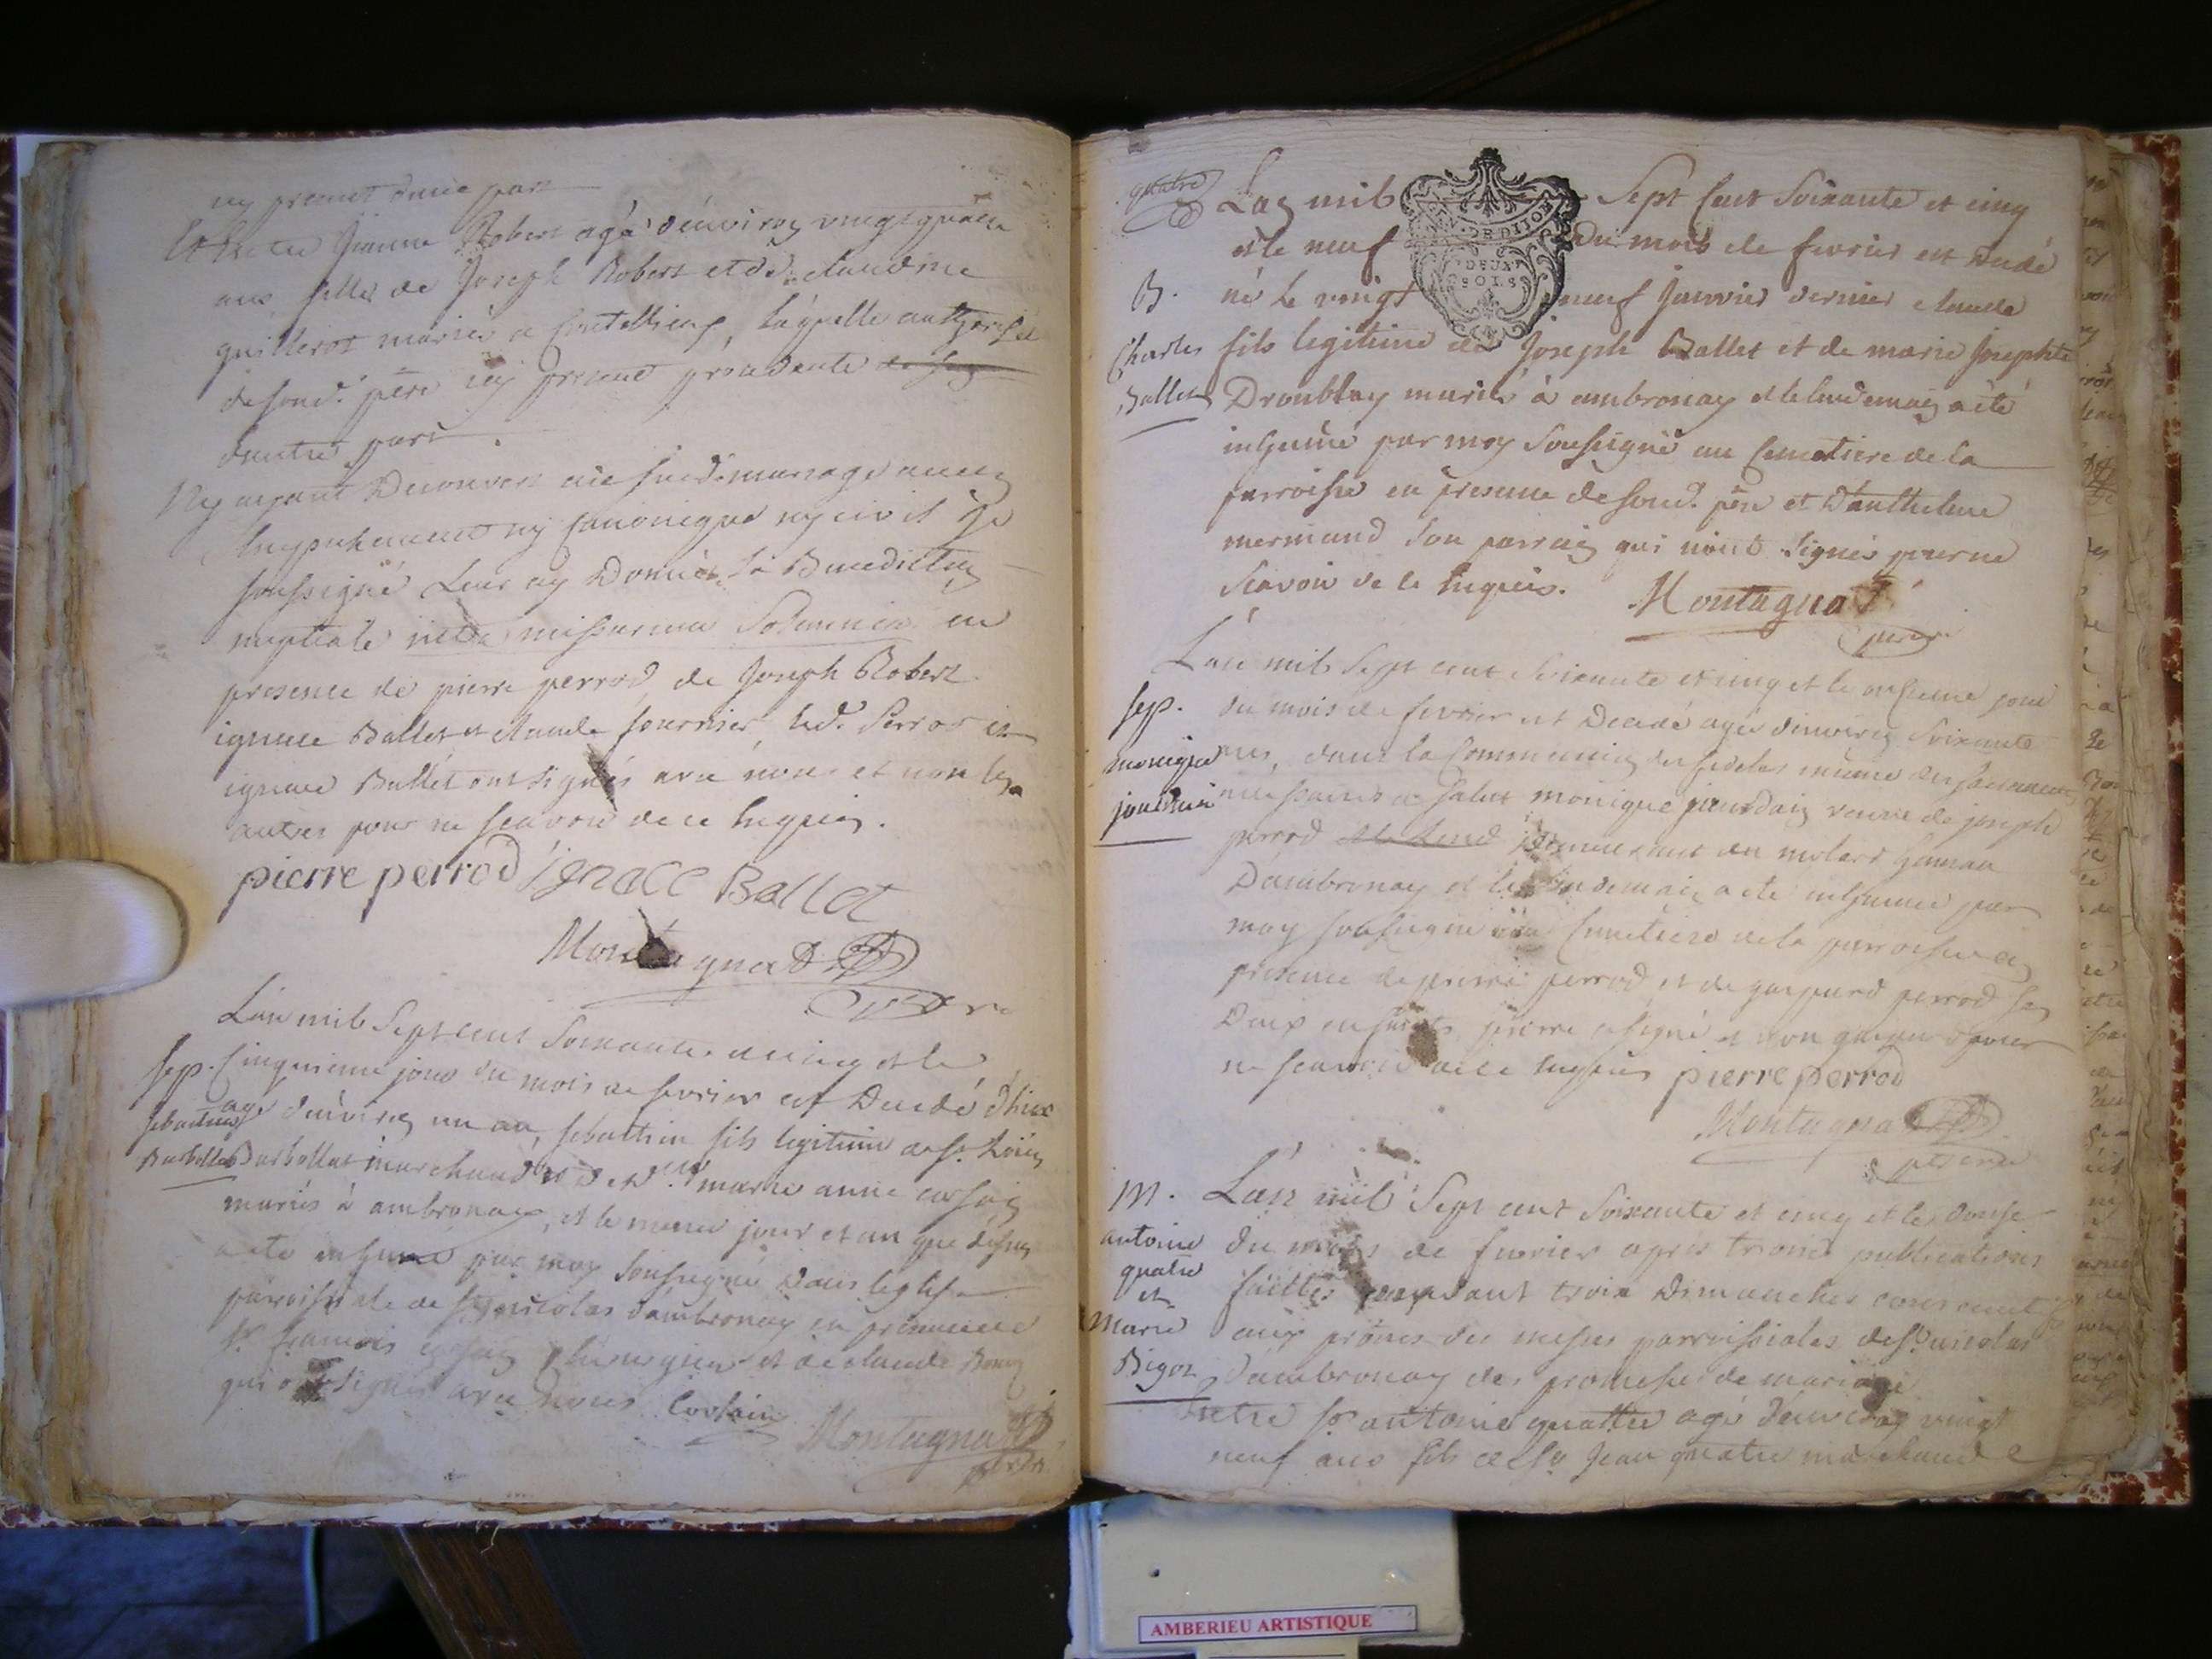 ny present d'une part
Et entre Jeanne Robert agé d'environ vingt quatre
ans fille de Joseph Robert et de claudine
guillerot mariés a laquelle authorisée
de sond. père icy present procedante
dautre part.
N'y ayant decouvert aud. mariage aucun
empechement ny canonique ny civil je
soussigné leur ay Donnée la Benediction
nuptiale en
presence de pierre perrod, de Joseph Robert
ignace Ballet et claude fournier, led. Perrod et
ignace Ballet ont signés avec nous et non les
autres pour ne scavoir de ce enquis.
pierre perrod ignace Ballet
Montagnat
L'an mil Sept cent Soixante et cinq et le
Sep. Cinquieme jour du mois de fevrier est Decedé
Sebastien agé d'environ un an, sebastien fils legitime de Sr.
Barbollat Barbollat marchand et de marie anne corsain
mariés à ambronay, et le meme jour et an que dessus
a eté inhumé par moy soussigné dans leglise
parroissiale de St. nicolas d'ambronay en presence de
Sr. francois corsain chirurgien et de claude
qui ont signé avec nous Corsain
Montagnat
quatre
L'an mil Sept Cent Soixante et cinq
et le neuf du mois de fevrier est Decedé
DEUX SOLS
B. né le vingt neuf Janvier dernier claude
Charles fils legitime de Joseph Ballet et de marie Josephte
Ballet Droublay mariés à ambronay et le lendemain a eté
inhumé par moy Soussigné au Cimetiere de la
parroisse en presence de sond. père et D'anthelme
mermand son parrain qui n'ont signés pour ne
Scavoir de ce enquis. Montagnat
L'an mil Sept cent Soixante et cinq et le onsieme jour
Sep. du mois de fevrier est Decedé agée d'environ Soixante
monique ans, dans la Communion des fideles munie des sacremens
jourdain necessaires a salut monique jourdain veuve de joseph
perrod demeurant au molard hameau
D'ambronay et le lendemain a eté inhumée par
moy soussigné au Cimetiere de la parroisse en
presence de pierre perrod et de gaspard perrod ses
Deux enfants pierre a signé et non gaspard pour
ne scavoir de ce enquis pierre perrod
Montagnat
M. L'an mil Sept cent Soixante et cinq et le Douse
antoine du mois de fevrier apres trois publications
quatre faittes pendant trois Dimanches consecutifs
et aux prônes des messes parroissiales de St. nicolas
Marie d'ambronay des promesses de mariage
Bigot
Entre Sr. antoine quatre agé d'environ vingt
neuf ans fils de Sr. Jean quatre marchand
AMBERIEU ARTISTIQUE